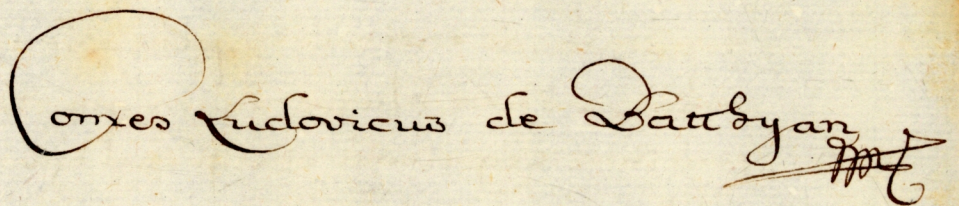 Comes Ludovicus de Batthyan